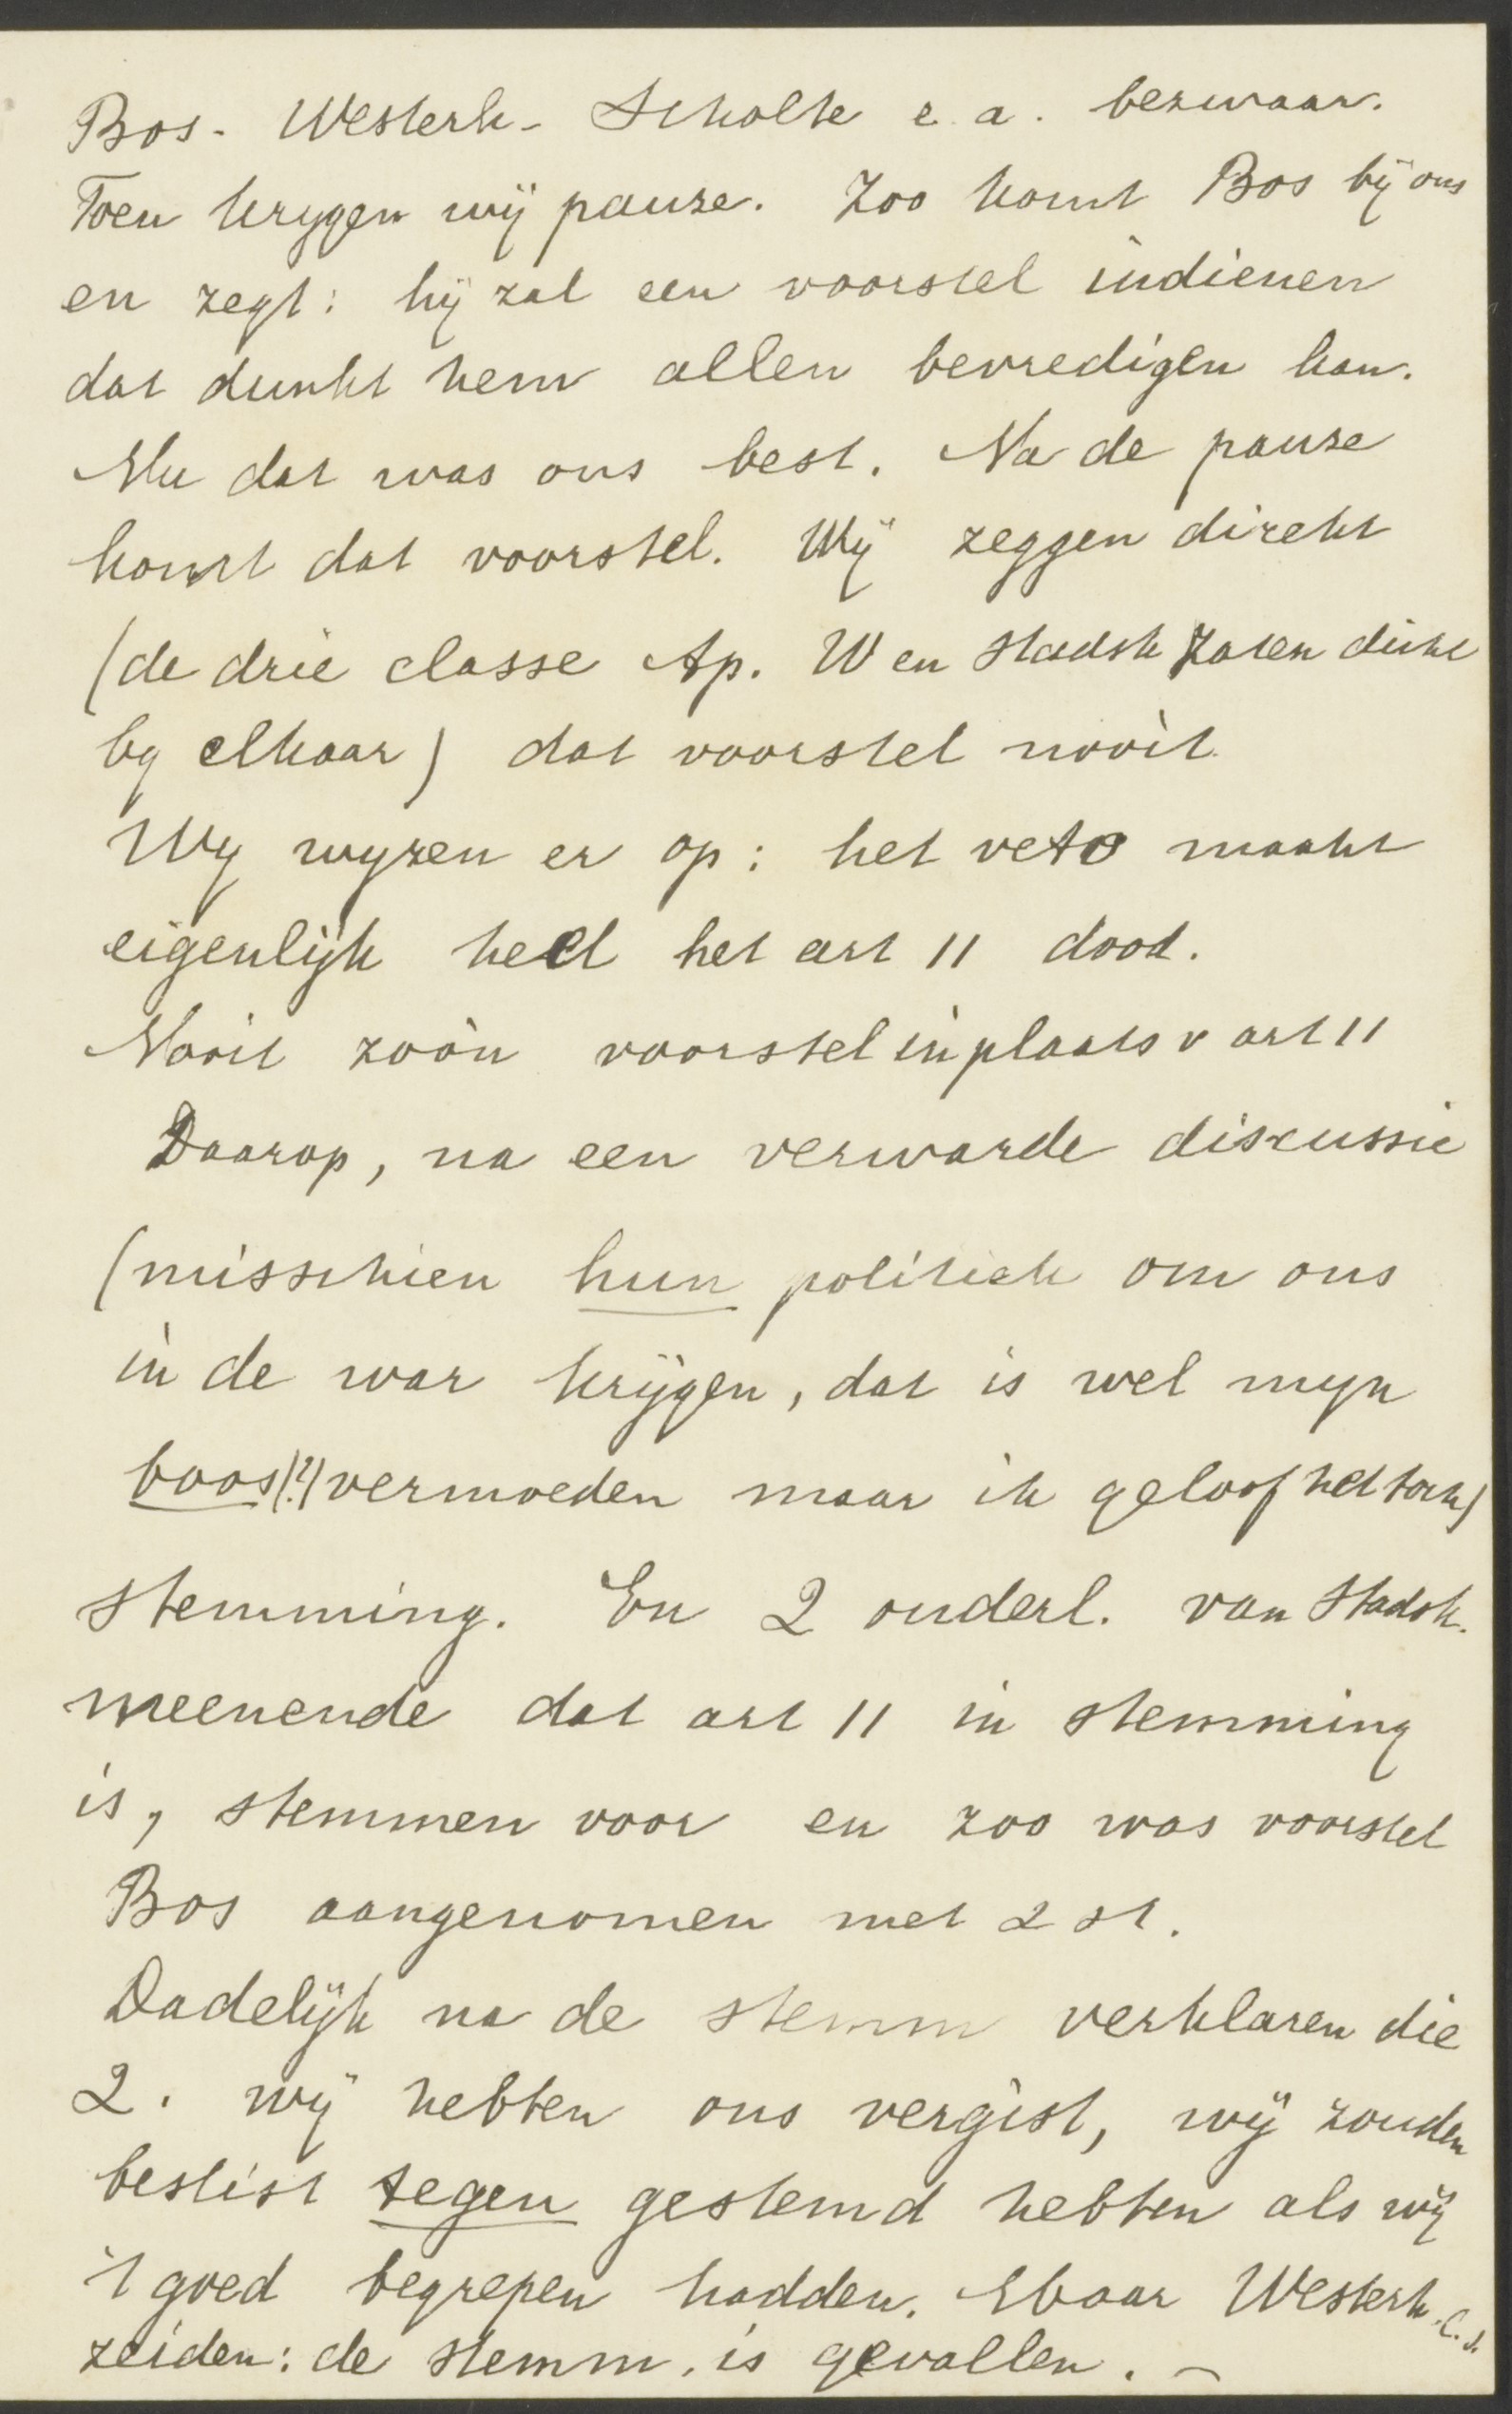 Bos - Westerh - Scholte e.a. bezwaar.
Toen krygen wij pauze. Zoo komt Bos bij ons
en zegt: hij zal een voorstel indienen
dat dunkt hem allen bevredigen kan.
Nu dat was ons best. Na de pauze
komt dat voorstel. Wij zeggen direkt
(de drie classe Ap. W en Stadsk zaten dicht
by elkaar) dat voorstel nooit.
Wy wyzen er op: het veto maakt
eigenlijk heel het art 11 dood.
Nooit zoo'n voorstel in plaats v art 11
Daarop, na een verwarde discussie
(misschien hun politiek om ons
in de war krijgen, dat is wel myn
boos(?) vermoeden maar ik geloof het toch)
stemming. En 2 ouderl. van Stadsk.
meenende dat art 11 in stemming
is, stemmen voor en zoo was voorstel
Bos aangenomen met 2 st.
Dadelijk na de stemm verklaren die
2. wij hebben ons vergist, wij zouden
beslist tegen gestemd hebben als wij
't goed begrepen hadden. Maar Westerh. c.s.
zeiden: de stemm. is gevallen. -